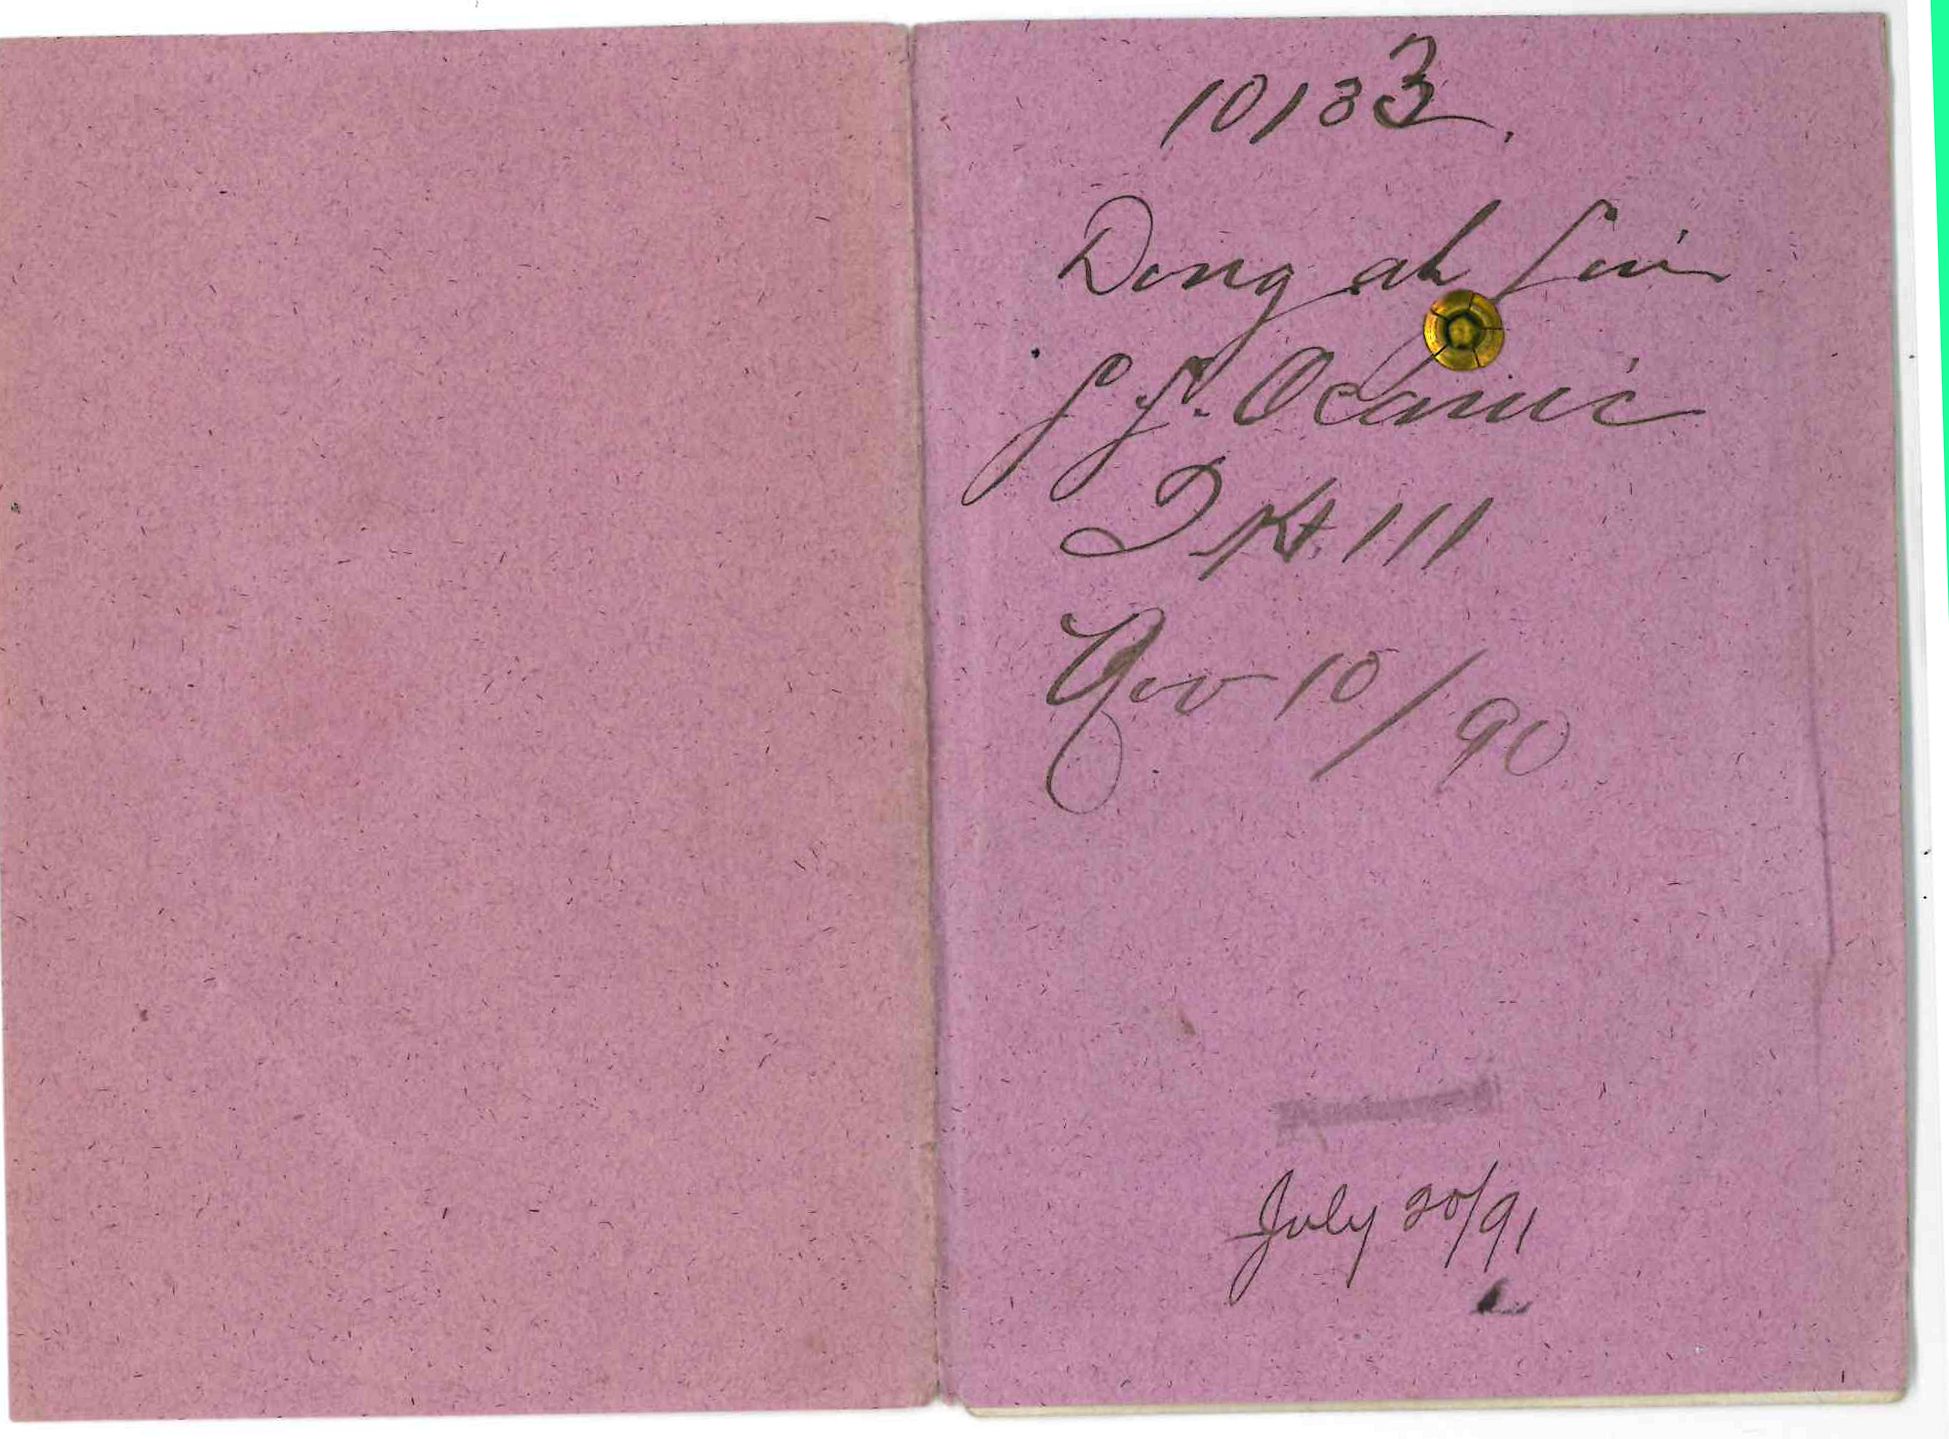 10133.
Dong ah
S.S. Oceanic
Tkt 111
Nov 10/90
July 20/91